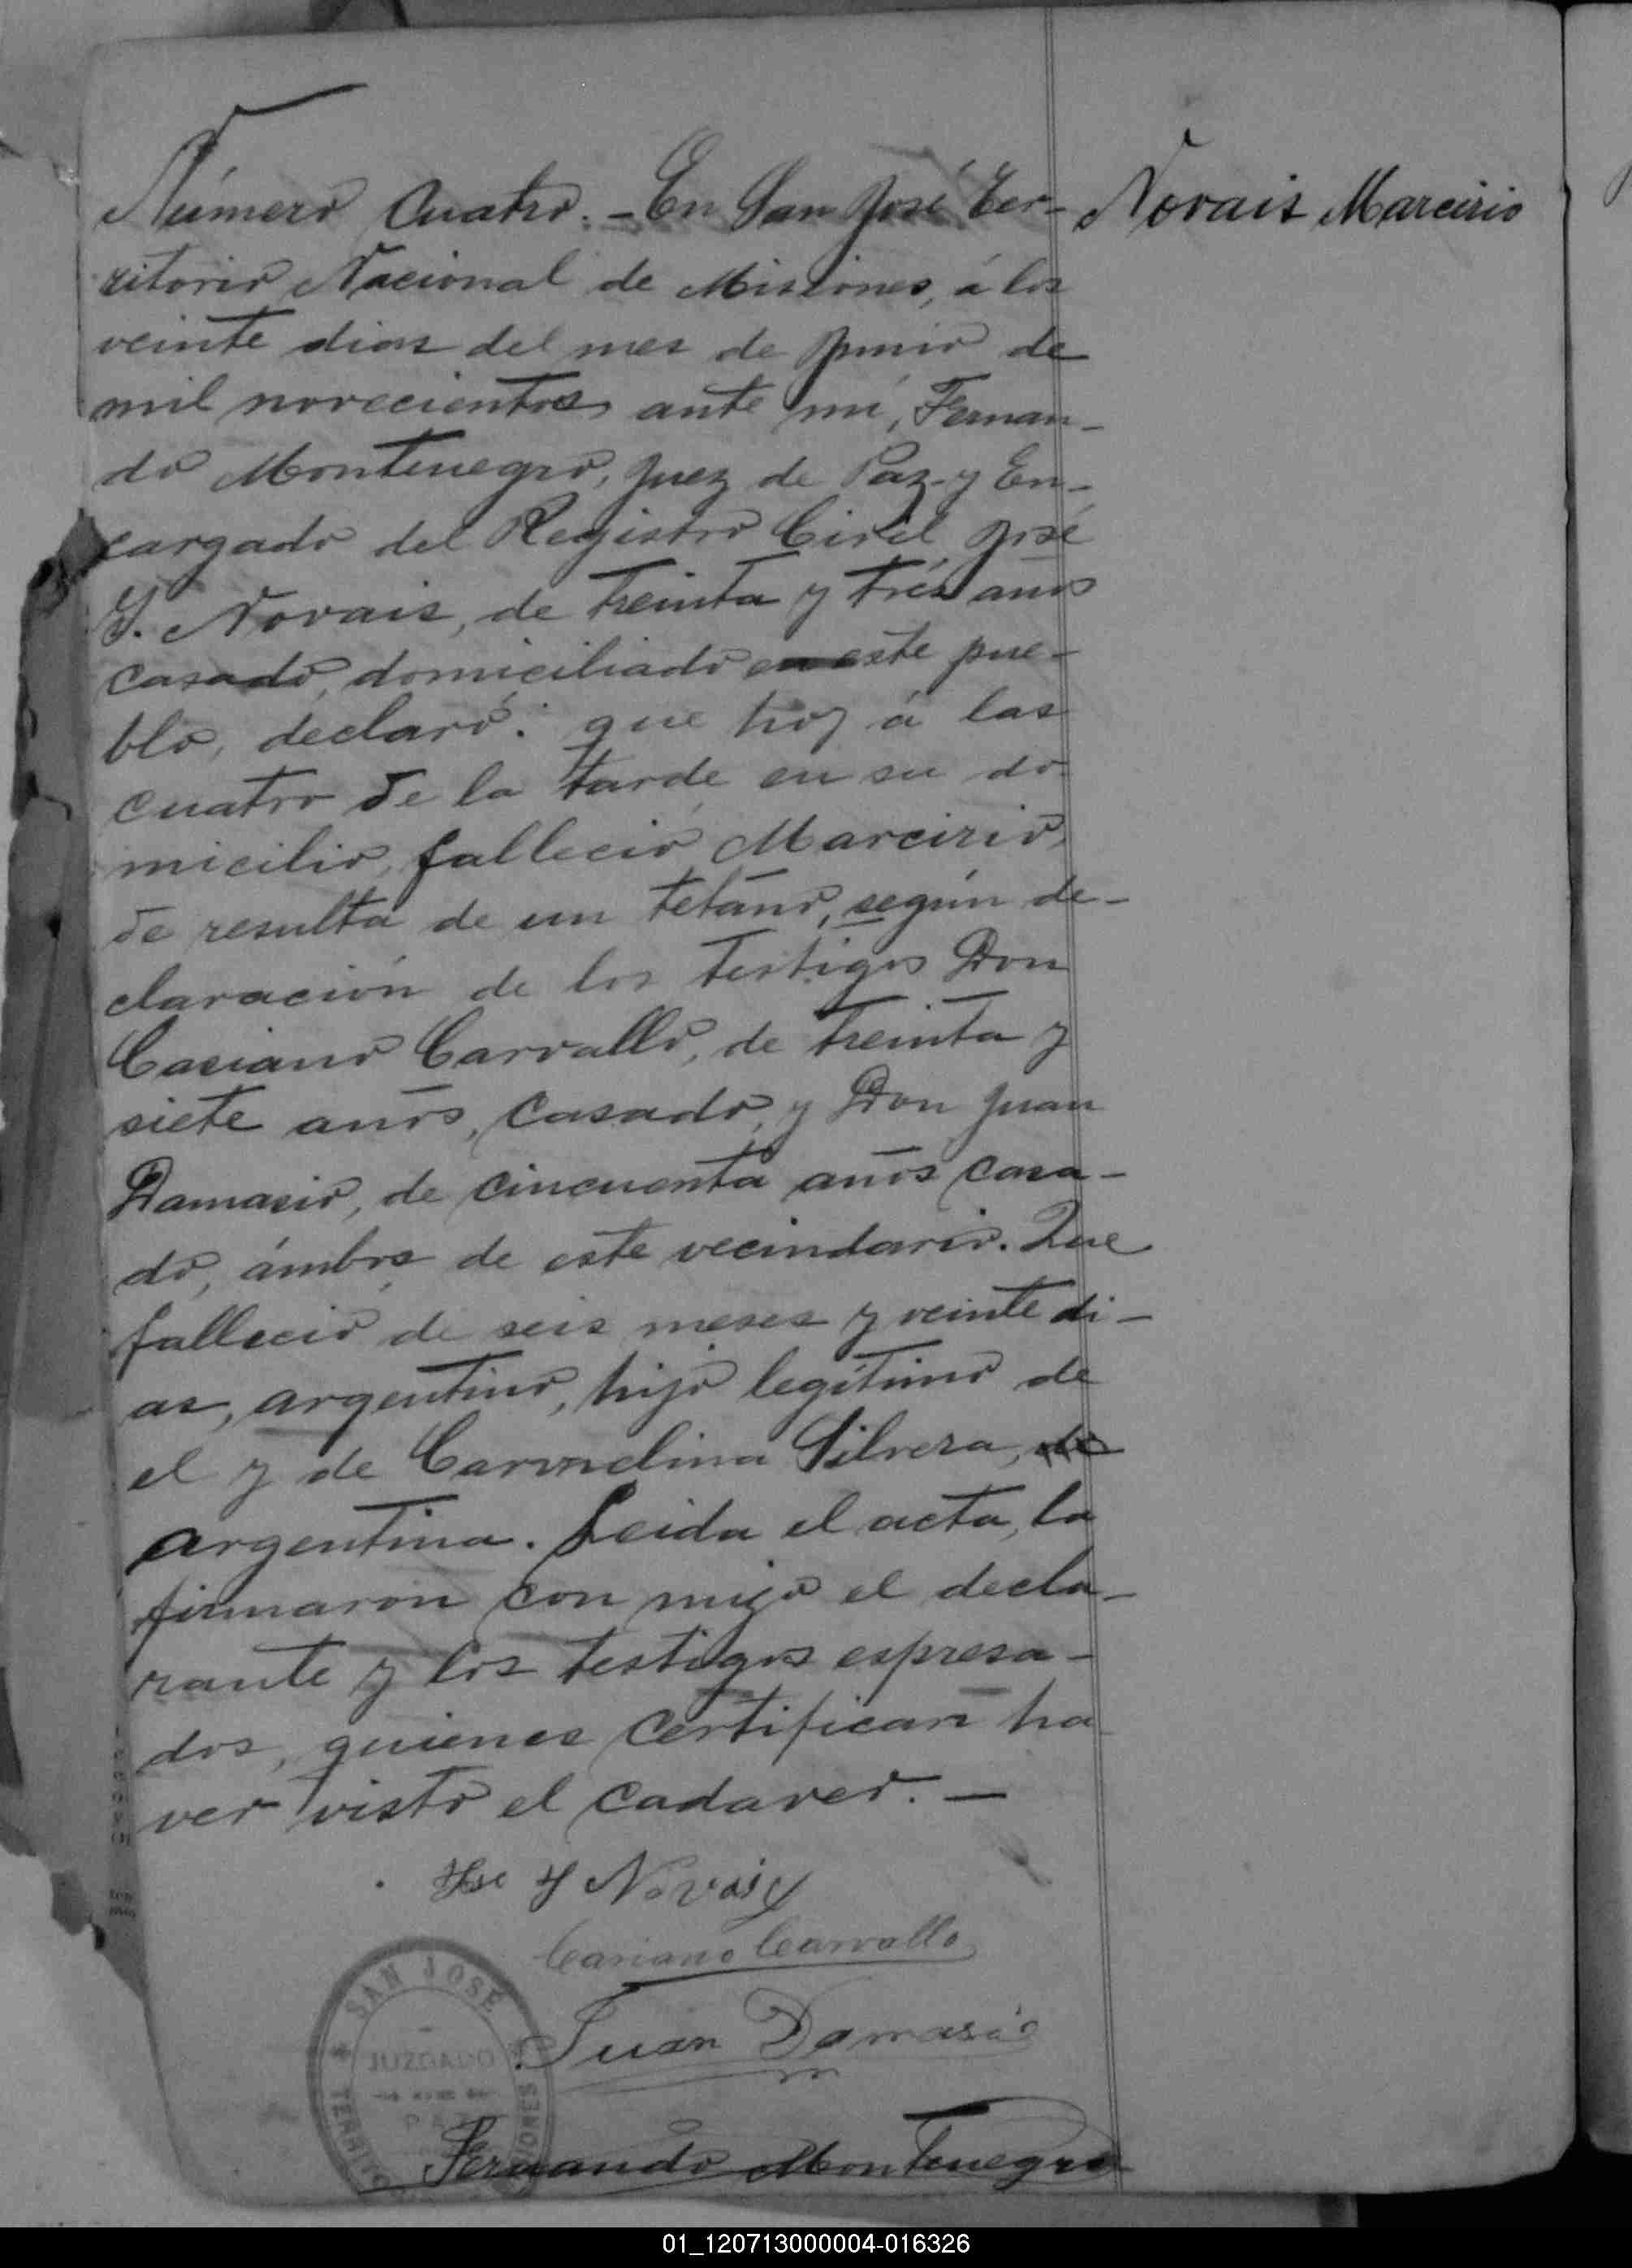 Número Cuatro. - En San José Ter-
Novais Marcirio
ritorio Nacional de Misiones, á los
veinte dias del mes de Junio de
mil novecientos ante mí, Fernan-
do Montenegro, Juez de Paz y En-
cargado del Registro Civil, José
Y. Novais, de treinta y trés años
casado, domiciliado en este pue-
blo, declaró: que hoy á las
cuatro de la tarde, en su do-
micilio, falleció Marcirio,
de resulta de un tetano, según de-
claración de los testigos Don
Casiano Carvallo, de treinta y
siete años, casado, y Don Juan
Damasio, de cincuenta años casa-
do, ámbos de este vecindario. Que
falleció de seis meses y veinte di-
as, argentino, hijo legítimo de
el y de Carmelina Silvera, de
argentina. Leida el acta, la
firmaron con migo el decla-
rante y los testigos espresa-
dos, quienes certifican ha
ver visto el cadaver. -
Jse Y Novais
Casiano Carvallo
Juan Damasio
Fernando Montenegro
SAN JOSÉ
JUZGADO
PAZ
01_120713000004-016326